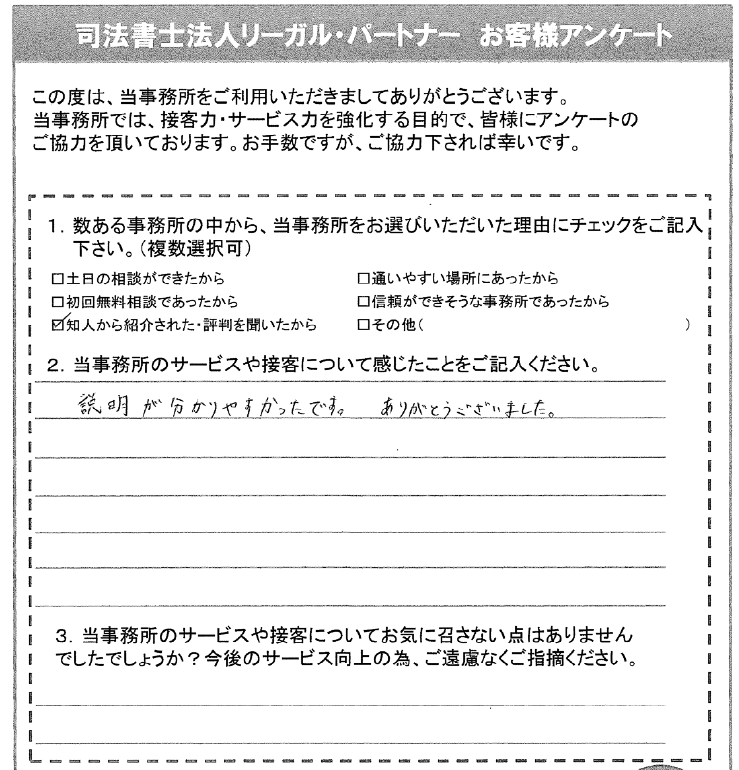 司法書士法人リーガル・パートナー お客様アンケート
この度は、当事務所をご利用いただきましてありがとうございます。
当事務所では、接客力・サービス力を強化する目的で、皆様にアンケートの
ご協力を頂いております。お手数ですが、ご協力下されば幸いです。
1．数ある事務所の中から、当事務所をお選びいただいた理由にチェックをご記入
下さい。（複数選択可）
□土日の相談ができたから □通いやすい場所にあったから
□初回無料相談であったから □信頼ができそうな事務所であったから
☑知人から紹介された・評判を聞いたから □その他（ ）
2．当事務所のサービスや接客について感じたことをご記入ください。
説明が分かりやすかったです。 ありがとうございました。
3．当事務所のサービスや接客についてお気に召さない点はありません
でしたでしょうか？今後のサービス向上の為、ご遠慮なくご指摘ください。